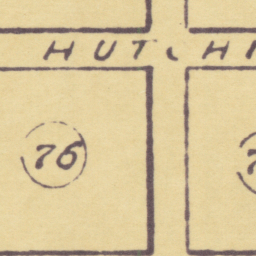 HUTCHI
76
7